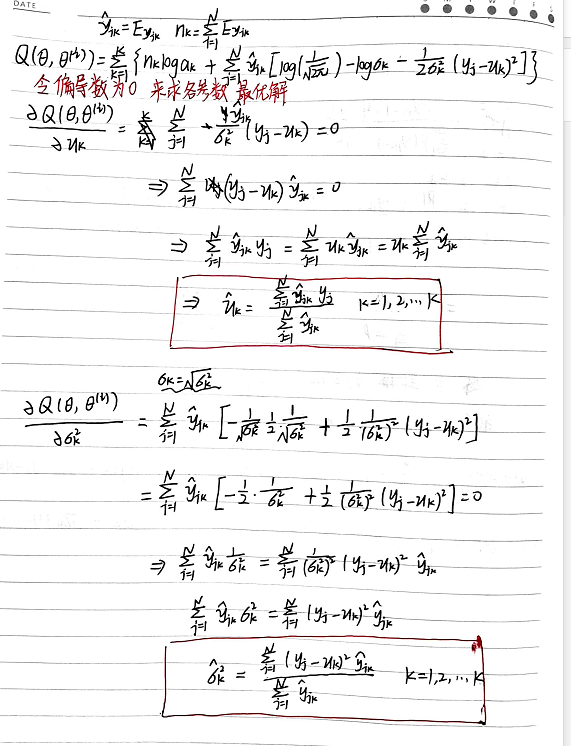 DATE
ŷjk = Eyjk  nk = Σ_{j=1}^{N} Eyjk
Q(θ, θ^(i)) = Σ_{k=1}^{K} { nk log ak + Σ_{j=1}^{N} ŷjk [ log(1/√2π) - log σk - 1/(2σk²) (yj - uk)² ] }
令偏导数为0 来求各参数最优解
∂Q(θ, θ^(i)) / ∂uk = Σ_{j=1}^{N} ŷjk/σk² (yj - uk) = 0
⇒ Σ_{j=1}^{N} (yj - uk) ŷjk = 0
⇒ Σ_{j=1}^{N} ŷjk yj = Σ_{j=1}^{N} uk ŷjk = uk Σ_{j=1}^{N} ŷjk
⇒ ûk = Σ_{j=1}^{N} ŷjk yj / Σ_{j=1}^{N} ŷjk  k=1,2,… K
σk = √σk²
∂Q(θ, θ^(i)) / ∂σk² = Σ_{j=1}^{N} ŷjk [ - 1/√σk² · 1/2 · 1/√σk² + 1/2 · 1/(σk²)² (yj - uk)² ]
= Σ_{j=1}^{N} ŷjk [ - 1/2 · 1/σk² + 1/2 · 1/(σk²)² (yj - uk)² ] = 0
⇒ Σ_{j=1}^{N} ŷjk 1/σk² = Σ_{j=1}^{N} 1/(σk²)² (yj - uk)² ŷjk
Σ_{j=1}^{N} ŷjk σk² = Σ_{j=1}^{N} (yj - uk)² ŷjk
σ̂k² = Σ_{j=1}^{N} (yj - uk)² ŷjk / Σ_{j=1}^{N} ŷjk  k=1,2,… K